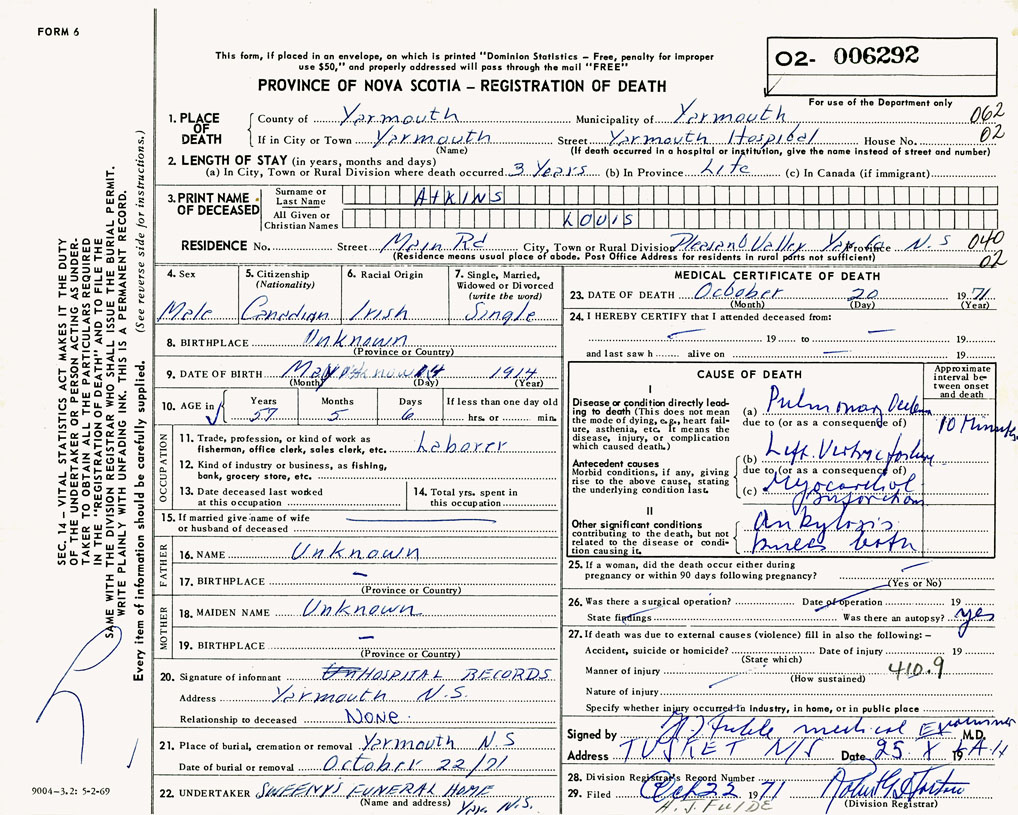 FORM 6
This form, if placed in an envelope, on which is printed "Dominion Statistics – Free, penalty for improper
use $50," and properly addressed will pass through the mail "FREE"
PROVINCE OF NOVA SCOTIA – REGISTRATION OF DEATH
02- 006292
For use of the Department only
SEC. 14 – VITAL STATISTICS ACT MAKES IT THE DUTY
OF THE UNDERTAKER OR PERSON ACTING AS UNDER-
TAKER TO OBTAIN ALL THE PARTICULARS REQUIRED
IN THE "REGISTRATION OF DEATH" AND TO FILE THE
SAME WITH THE DIVISION REGISTRAR WHO SHALL ISSUE THE BURIAL PERMIT.
WRITE PLAINLY WITH UNFADING INK. THIS IS A PERMANENT RECORD.
Every item of information should be carefully supplied. (See reverse side for instructions.)
1. PLACE OF DEATH
County of Yarmouth Municipality of Yarmouth 062
If in City or Town Yarmouth Street Yarmouth Hospital House No. 02
(Name) (If death occurred in a hospital or institution, give the name instead of street and number)
2. LENGTH OF STAY (in years, months and days)
(a) In City, Town or Rural Division where death occurred 3 Years (b) In Province Life (c) In Canada (if immigrant)
3. PRINT NAME OF DECEASED
Surname or Last Name ATKINS
All Given or Christian Names LOUIS
RESIDENCE No. Street Main Rd City, Town or Rural Division Pleasant Valley Yar. Co Province N.S 040
(Residence means usual place of abode. Post Office Address for residents in rural parts not sufficient) 02
4. Sex
Male
5. Citizenship
(Nationality)
Canadian
6. Racial Origin
Irish
7. Single, Married,
Widowed or Divorced
(write the word)
Single
8. BIRTHPLACE Unknown
(Province or Country)
9. DATE OF BIRTH May 14 1914
(Month) (Day) (Year)
10. AGE in
Years Months Days If less than one day old
57 5 6 hrs. or min.
OCCUPATION
11. Trade, profession, or kind of work as
fisherman, office clerk, sales clerk, etc. Laborer
12. Kind of industry or business, as fishing,
bank, grocery store, etc.
13. Date deceased last worked
at this occupation
14. Total yrs. spent in
this occupation
15. If married give name of wife
or husband of deceased
FATHER
16. NAME Unknown
17. BIRTHPLACE –
(Province or Country)
MOTHER
18. MAIDEN NAME Unknown
19. BIRTHPLACE –
(Province or Country)
20. Signature of informant HOSPITAL RECORDS
Address Yarmouth N.S
Relationship to deceased NONE.
21. Place of burial, cremation or removal Yarmouth N.S
Date of burial or removal October 22/71
22. UNDERTAKER SWEENY'S FUNERAL HOME
(Name and address) Yar. N.S.
9004–3.2: 5-2-69
MEDICAL CERTIFICATE OF DEATH
23. DATE OF DEATH October 20 1971
(Month) (Day) (Year)
24. I HEREBY CERTIFY that I attended deceased from:
19 to 19
and last saw h alive on 19
CAUSE OF DEATH
Approximate
interval be-
tween onset
and death
I
Disease or condition directly lead-
ing to death (This does not mean
the mode of dying, e.g., heart fail-
ure, asthenia, etc. It means the
disease, injury, or complication
which caused death.)
(a) Pulmonary Oedema 10 Minutes
due to (or as a consequence of)
Antecedent causes
Morbid conditions, if any, giving
rise to the above cause, stating
the underlying condition last.
(b) Left
due to (or as a consequence of)
(c) Myocardial
infarction
II
Other significant conditions
contributing to the death, but not
related to the disease or condi-
tion causing it.
Ankylosis
knees both
25. If a woman, did the death occur either during
pregnancy or within 90 days following pregnancy?
(Yes or No)
26. Was there a surgical operation? Date of operation 19
State findings Was there an autopsy? yes
27. If death was due to external causes (violence) fill in also the following: –
Accident, suicide or homicide? Date of injury 19
(State which)
Manner of injury 410.9
(How sustained)
Nature of injury
Specify whether injury occurred in industry, in home, or in public place
Signed by medical Examiner M.D.
Address TUSKET N/S Date 25 X 19
28. Division Registrar's Record Number
29. Filed Oct 22 1971
(Division Registrar)